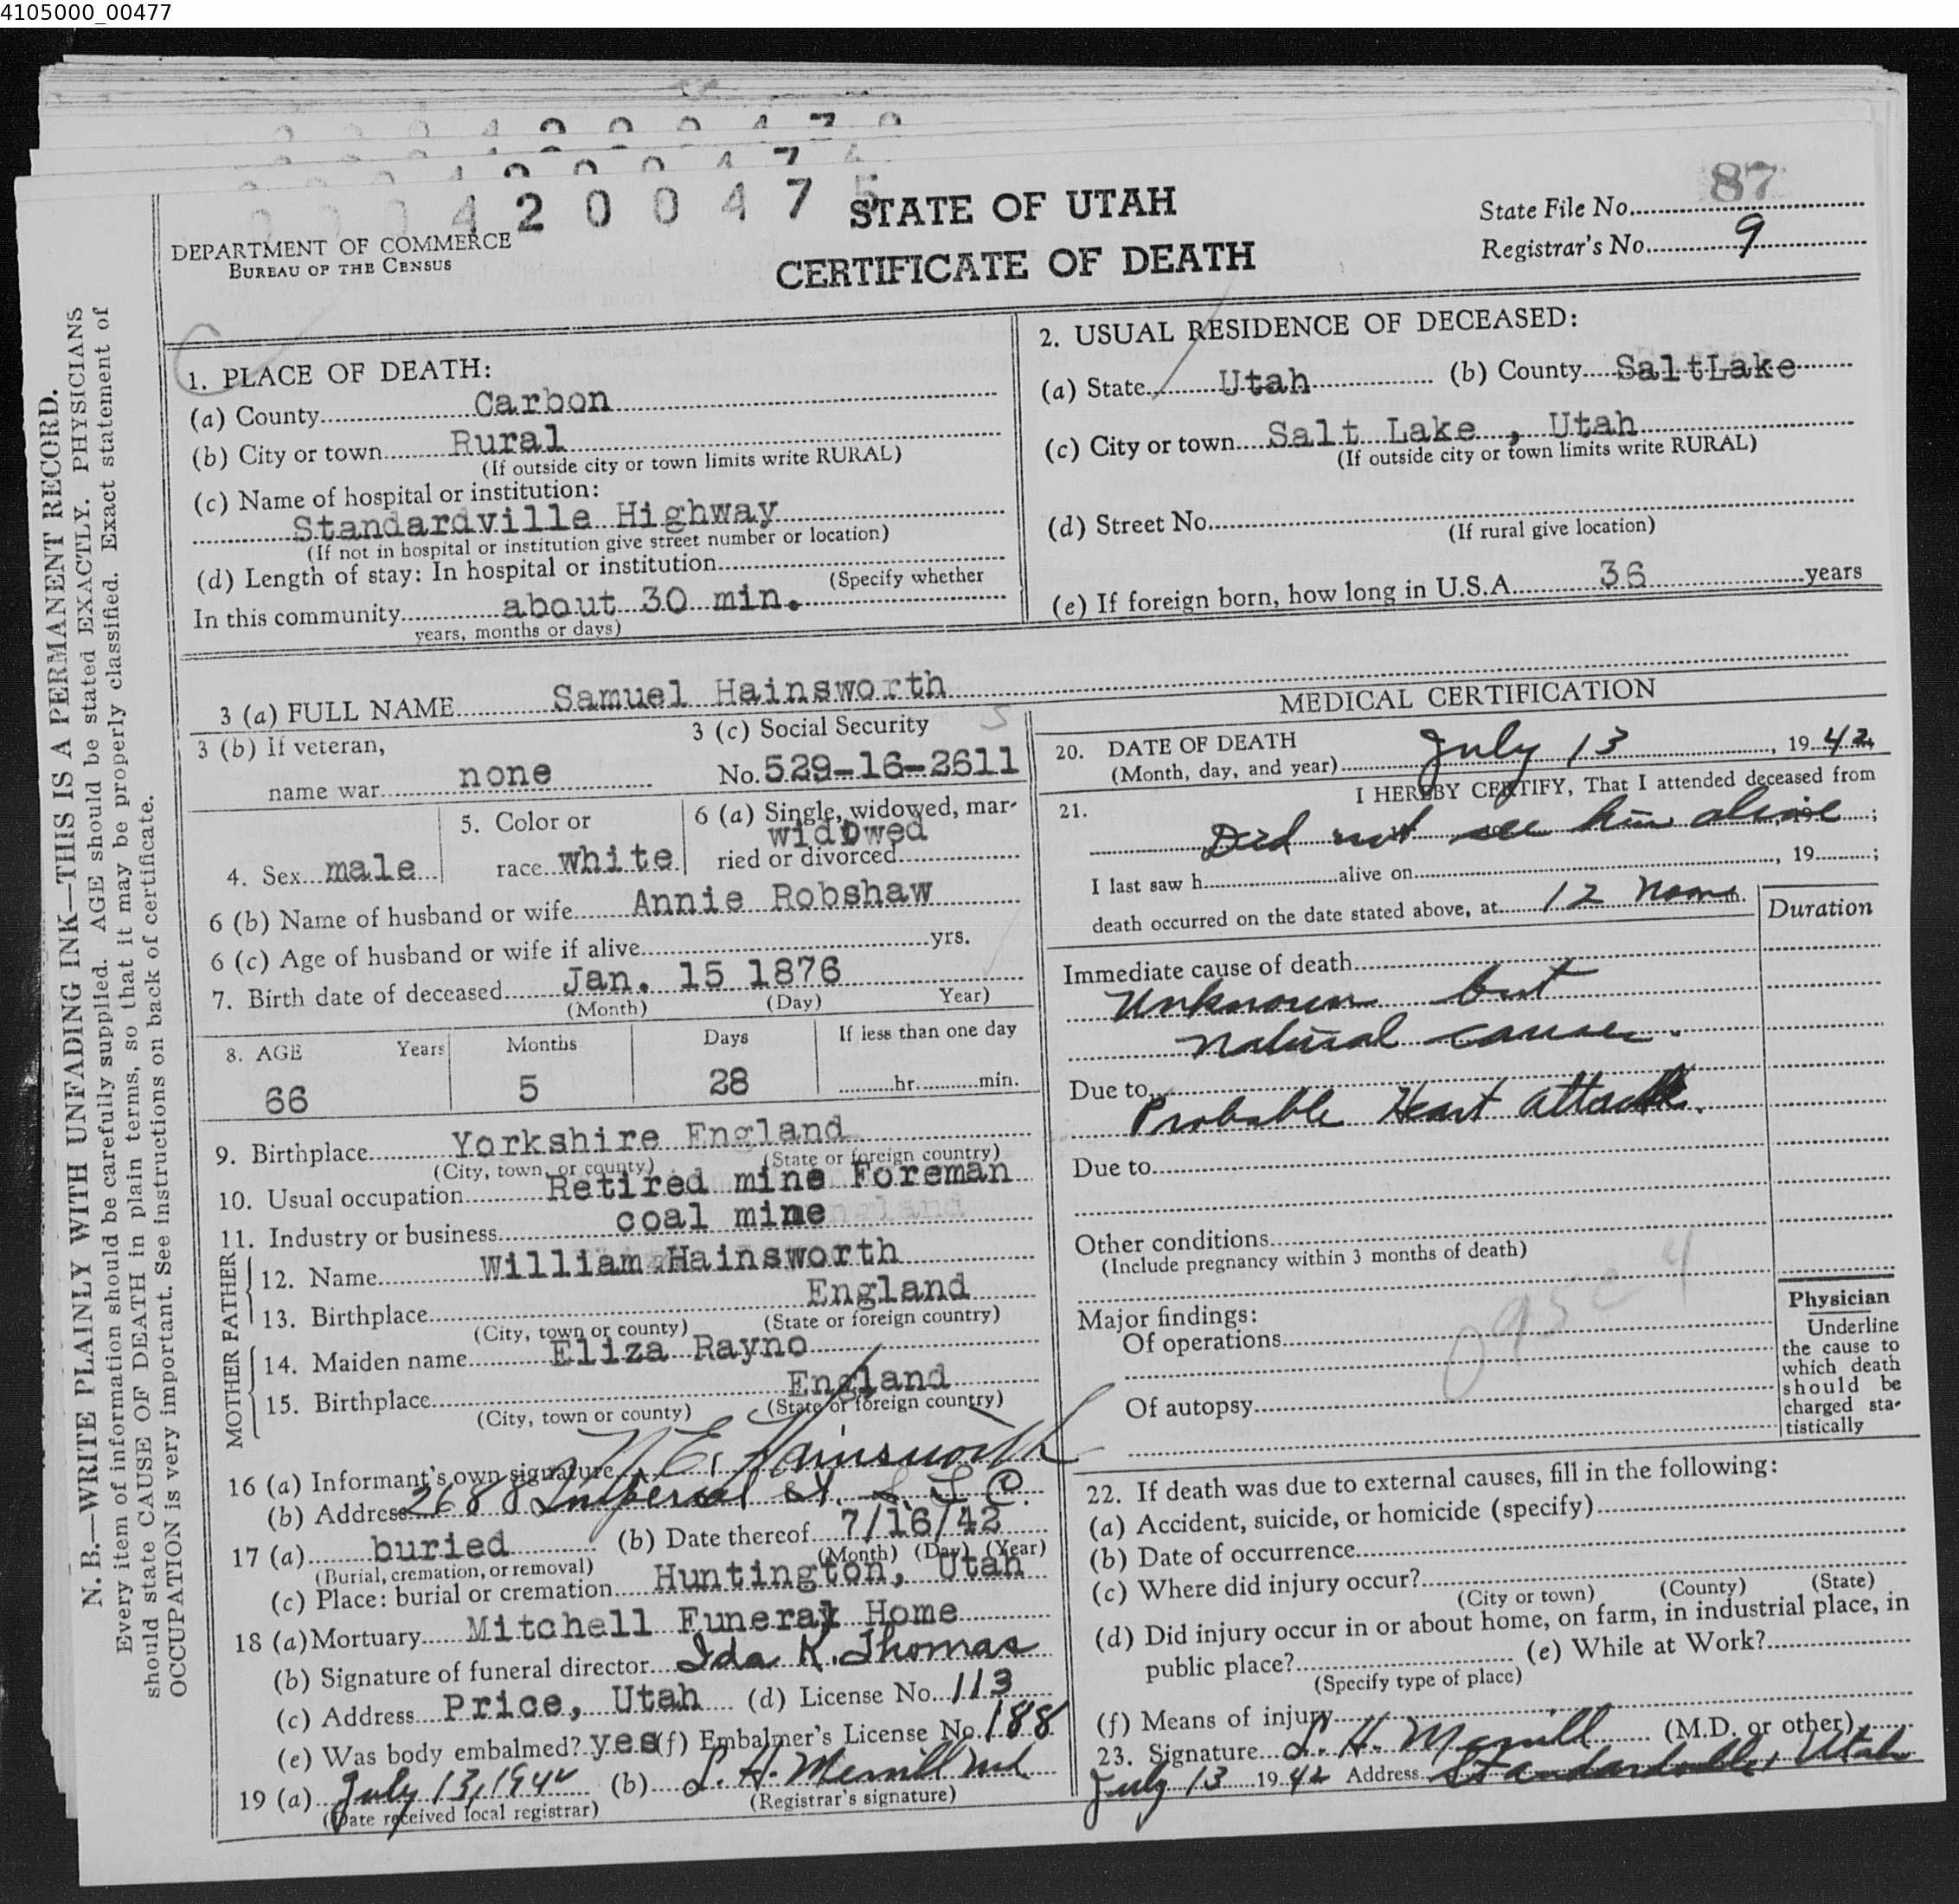 4105000_00477
4 2 0 0 4 7 5
STATE OF UTAH
CERTIFICATE OF DEATH
DEPARTMENT OF COMMERCE
BUREAU OF THE CENSUS
State File No. 87
Registrar's No. 9
N. B.—WRITE PLAINLY WITH UNFADING INK—THIS IS A PERMANENT RECORD.
Every item of information should be carefully supplied. AGE should be stated EXACTLY. PHYSICIANS
should state CAUSE OF DEATH in plain terms, so that it may be properly classified. Exact statement of
OCCUPATION is very important. See instructions on back of certificate.
1. PLACE OF DEATH:
(a) County Carbon
(b) City or town Rural
(If outside city or town limits write RURAL)
(c) Name of hospital or institution:
Standardville Highway
(If not in hospital or institution give street number or location)
(d) Length of stay: In hospital or institution
(Specify whether
In this community about 30 min.
years, months or days)
2. USUAL RESIDENCE OF DECEASED:
(a) State Utah (b) County SaltLake
(c) City or town Salt Lake , Utah
(If outside city or town limits write RURAL)
(d) Street No.
(If rural give location)
(e) If foreign born, how long in U.S.A. 36 years
3 (a) FULL NAME Samuel Hainsworth
3 (b) If veteran,
name war none
3 (c) Social Security
No. 529-16-2611
4. Sex male
5. Color or
race white
6 (a) Single, widowed, mar-
widowed
ried or divorced
6 (b) Name of husband or wife Annie Robshaw
6 (c) Age of husband or wife if alive yrs.
7. Birth date of deceased Jan. 15 1876
(Month) (Day) Year)
8. AGE Years Months Days If less than one day
66 5 28 hr. min.
9. Birthplace Yorkshire England
(City, town, or county) (State or foreign country)
10. Usual occupation Retired mine Foreman
11. Industry or business coal mine
FATHER
12. Name William Hainsworth
13. Birthplace England
(City, town or county) (State or foreign country)
MOTHER
14. Maiden name Eliza Rayno
15. Birthplace England
(City, town or county) (State or foreign country)
16 (a) Informant's own signature E. Hainsworth
(b) Address 2688 Imperial St. S L C.
17 (a) buried (b) Date thereof 7/16/42
(Burial, cremation, or removal) (Month) (Day) (Year)
(c) Place: burial or cremation Huntington, Utah
18 (a) Mortuary Mitchell Funeral Home
(b) Signature of funeral director Ida K. Thomas
(c) Address Price, Utah (d) License No. 113
(e) Was body embalmed? yes (f) Embalmer's License No. 188
19 (a) July 13, 1942 (b) L. H. Merrill md
(Date received local registrar) (Registrar's signature)
MEDICAL CERTIFICATION
20. DATE OF DEATH
(Month, day, and year) July 13, 1942
21. I HEREBY CERTIFY, That I attended deceased from
Did not see him alive , 19 ;
I last saw h alive on , 19 ;
death occurred on the date stated above, at 12 Noon m.
Duration
Immediate cause of death
Unknown but
natural cause.
Due to
Probable Heart attack.
Due to
Other conditions
(Include pregnancy within 3 months of death)
Major findings:
Of operations
Of autopsy
Physician
Underline
the cause to
which death
should be
charged sta-
tistically
22. If death was due to external causes, fill in the following:
(a) Accident, suicide, or homicide (specify)
(b) Date of occurrence
(c) Where did injury occur?
(City or town) (County) (State)
(d) Did injury occur in or about home, on farm, in industrial place, in
public place? (e) While at Work?
(Specify type of place)
(f) Means of injury
23. Signature L. H. Merrill (M.D. or other)
July 13 1942 Address Standardville, Utah